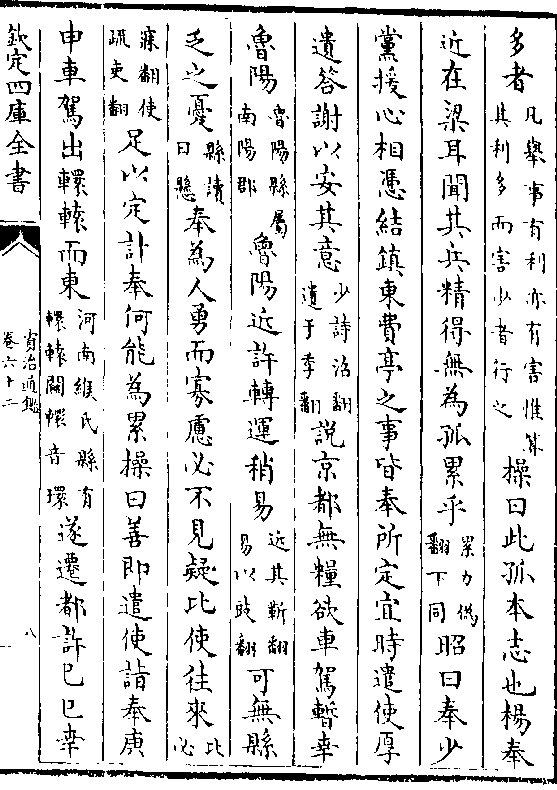 多者凡舉事有利亦有害惟算其利多而害少者行之操曰此孤本志也楊奉
近在梁耳聞其兵精得無為孤累乎累力偽翻下同昭曰奉少
黨援心相憑結鎮東費亭之事皆奉所定宜時遣使厚
遺答謝以安其意少詩沼翻遺于季翻說京都無糧欲車駕暫幸
魯陽魯陽縣屬南陽郡魯陽近許轉運稍易近其靳翻易以豉翻可無縣
乏之憂縣讀曰懸奉為人勇而寡慮必不見疑比使往來比必
寐翻使疏吏翻足以定計奉何能為累操曰善即遣使詣奉庚
申車駕出轘轅而東河南緱氏縣有轘轅關轘音環遂遷都許己巳幸
欽定四庫全書
資治通鑑
卷六十二
八